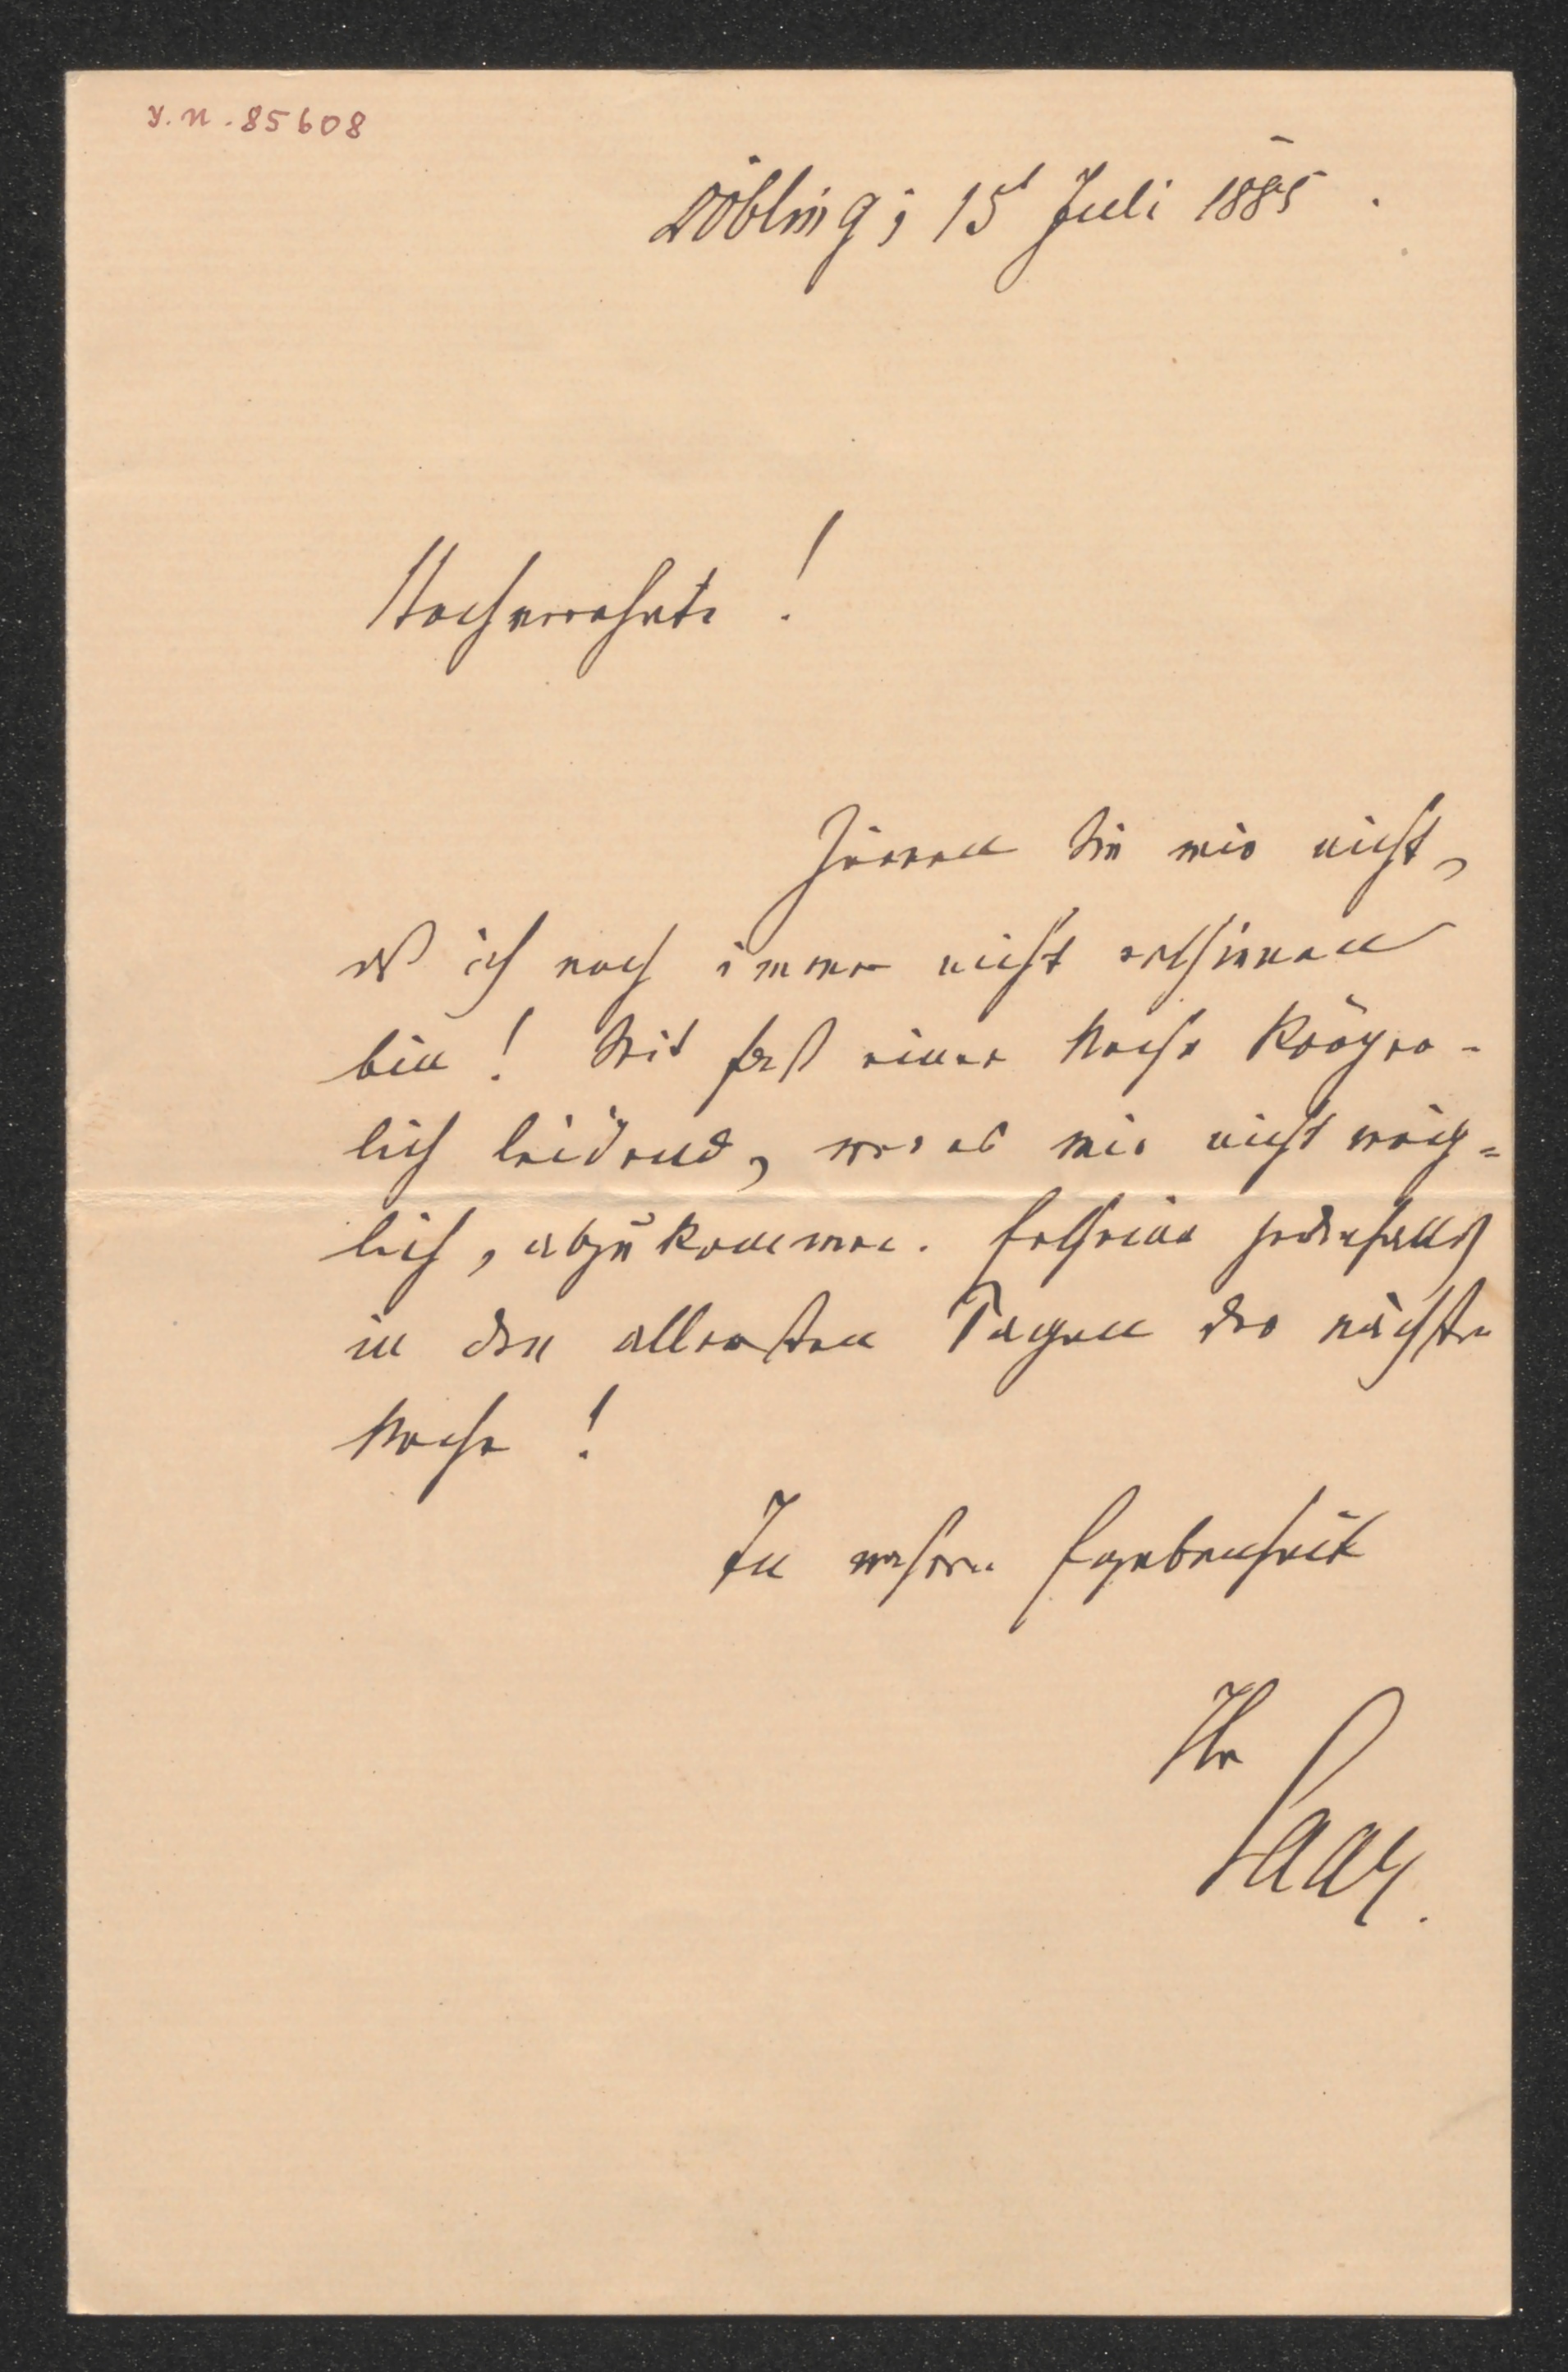 J. N. 85608
Döbling, 15t Juli 1885.
Hochverehrte!
Zürnen Sie mir nicht,
daß ich noch immer nicht erschienen
bin! Seit fast einer Woche körper-
lich leidend, war es mir nicht mög=
lich, abzukommen. Erscheine jedenfalls
in den allerersten Tagen der nächsten
Woche!
In wahrer Ergebenheit
Ihr
Saar.